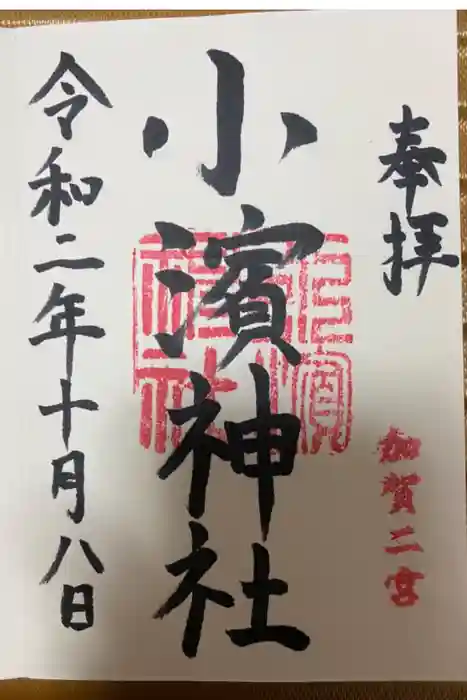 奉拝
加賀二宮
小濱神社
小濱神社
令和二年十月八日